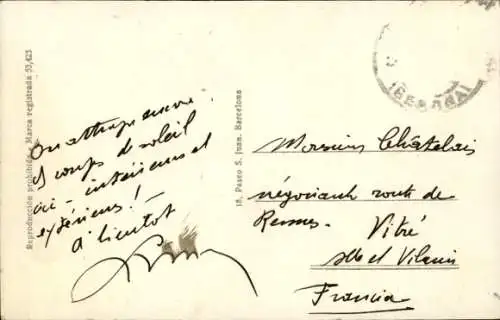 Reproducción prohibida. Marca registrada 53,425
On attrape
coups de soleil
ici - intérieurs et
extérieurs! -
à bientôt
18, Paseo S. Juan. Barcelona
(GERONA)
Monsieur Châtelais
négociant route de
Rennes. Vitré
Ille et Vilaine
Francia